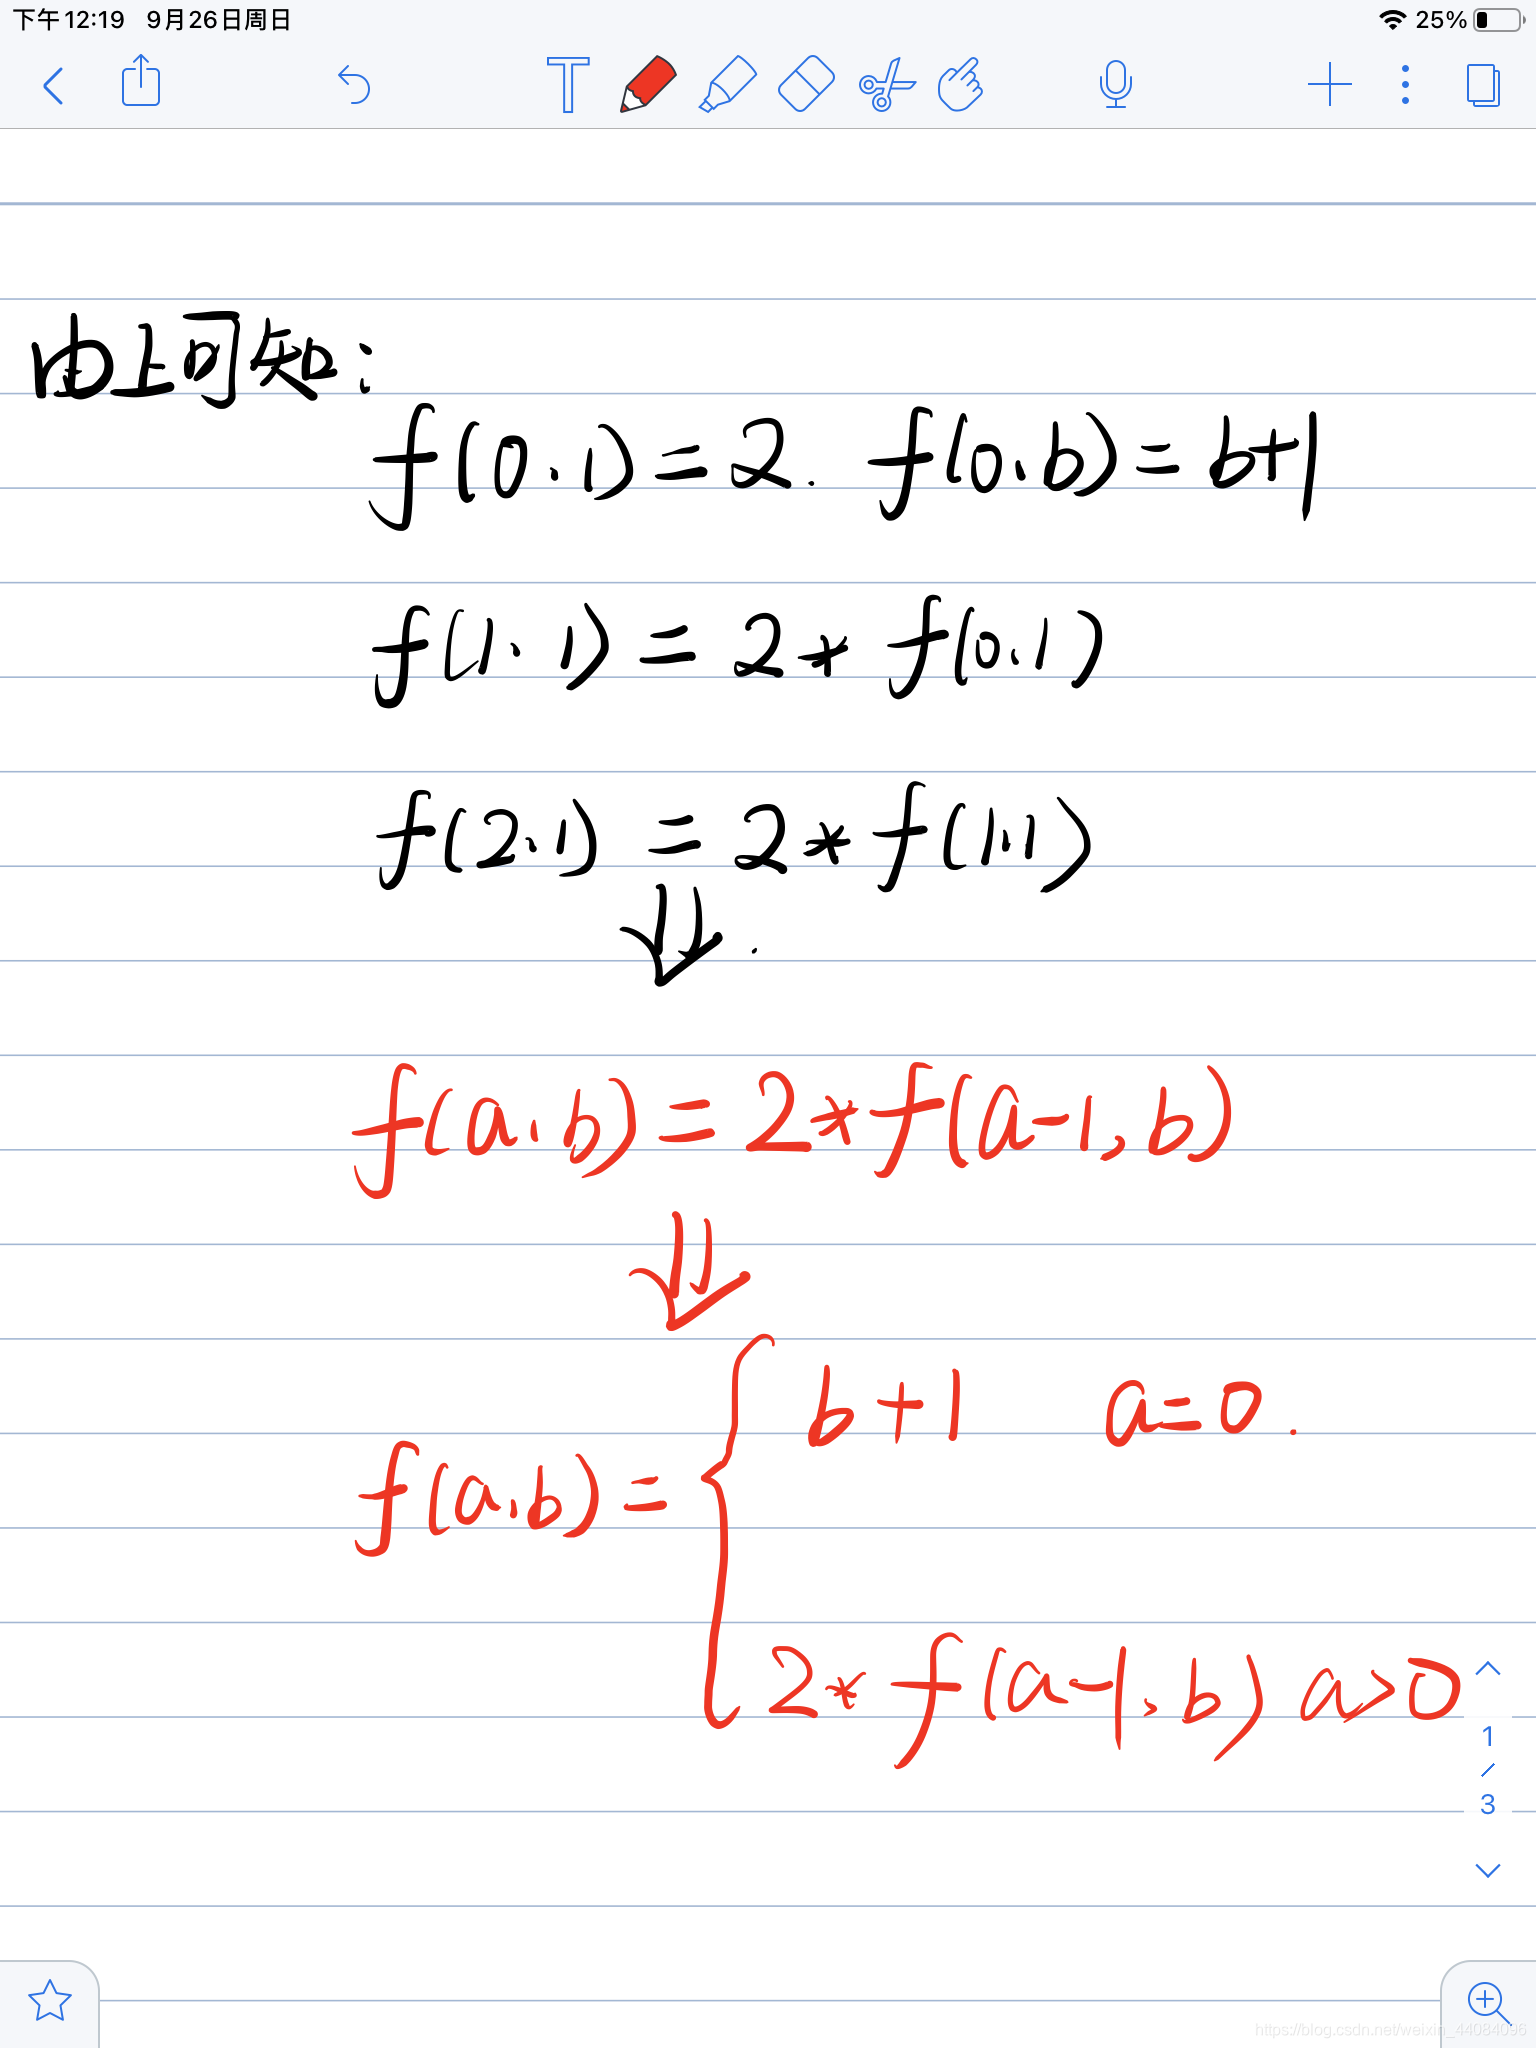 下午12:19 9月26日周日 25%
T
由上可知：
f(0,1)=2. f(0,b)=b+1
f(1,1)=2*f(0,1)
f(2,1)=2*f(1,1)
f(a,b)=2*f(a-1,b)
f(a,b)=
b+1 a=0.
2*f(a-1,b) a>0
1
/
3
https://blog.csdn.net/weixin_44084096